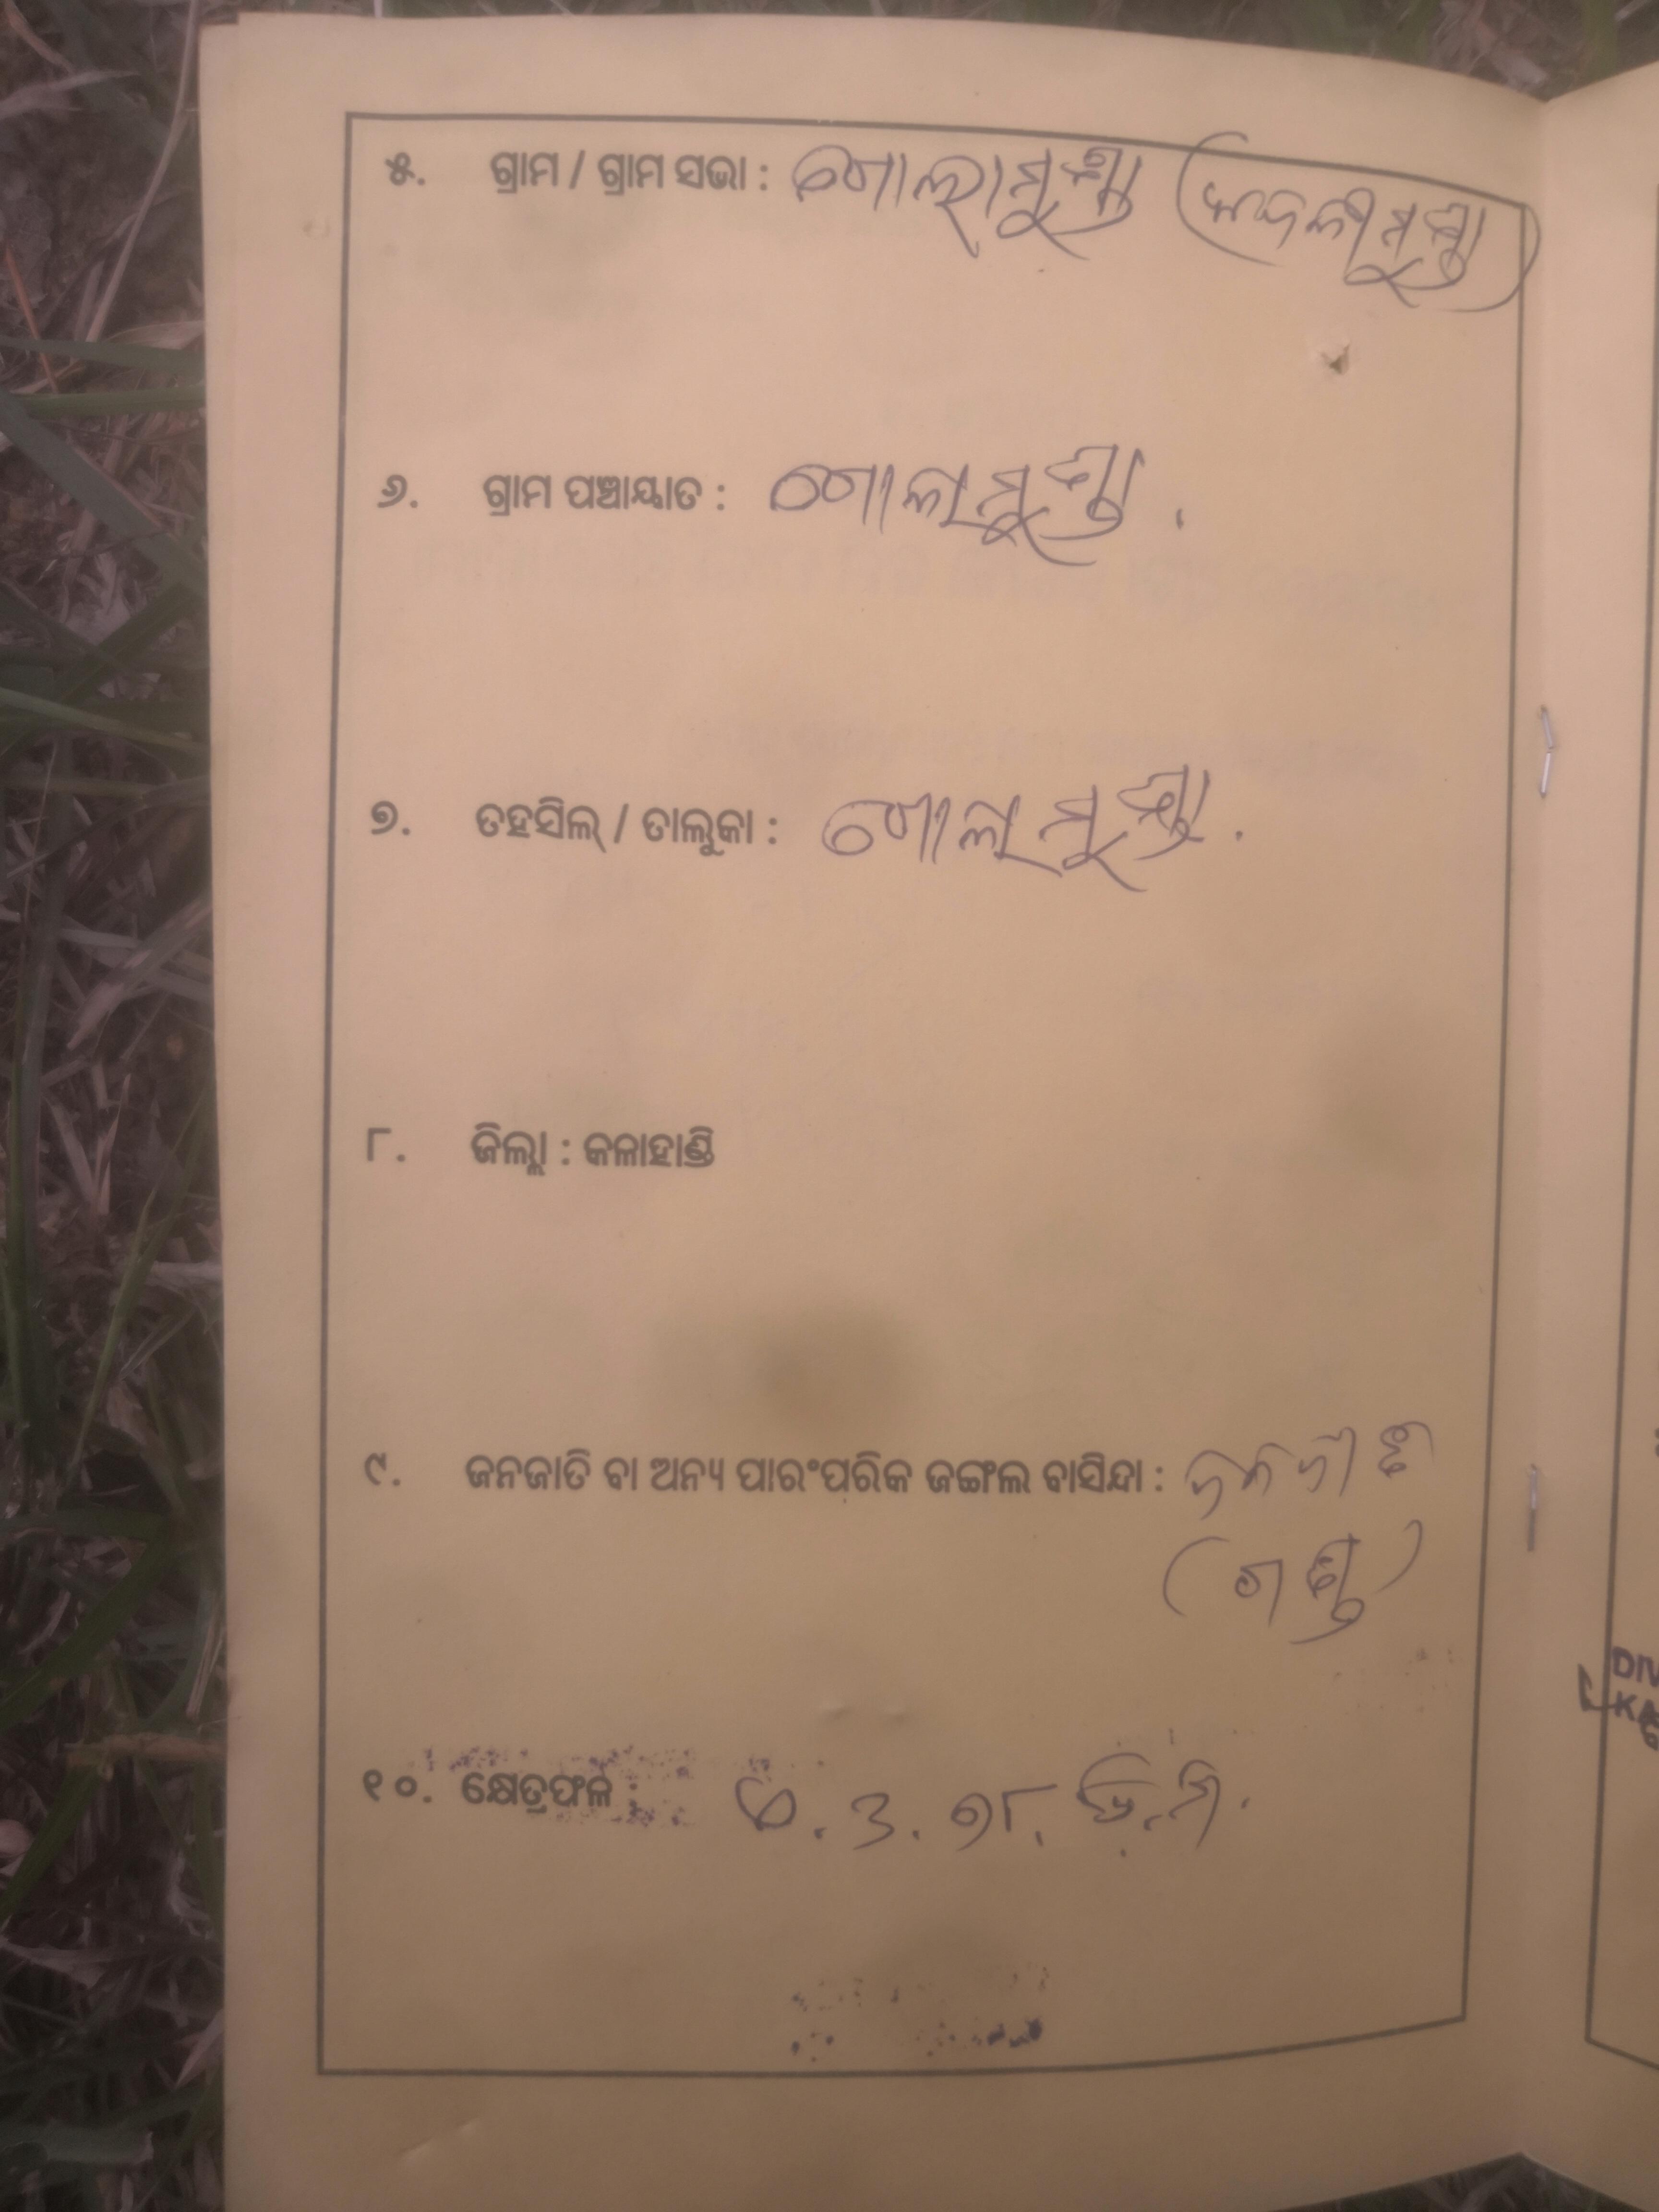 ୫. ଗ୍ରାମ / ଗ୍ରାମ ସଭା : ଗୋଲାମୁଣ୍ଡା (କଦଳୀମୁଣ୍ଡା)
୬. ଗ୍ରାମ ପଞ୍ଚାୟାତ : ଗୋଲାମୁଣ୍ଡା .
୭. ତହସିଲ୍ / ତାଲୁକା : ଗୋଲାମୁଣ୍ଡା .
୮. ଜିଲ୍ଲା : କଳାହାଣ୍ଡି
୯. ଜନଜାତି ବା ଅନ୍ୟ ପାରଂପରିକ ଜଙ୍ଗଲ ବାସିନ୍ଦା : ଜନଜାତି
(ଗଣ୍ଡ)
୧୦. କ୍ଷେତ୍ରଫଳ : ଏ . ୩ . ୭୮ . ଡି.ମି.
DIV
KA